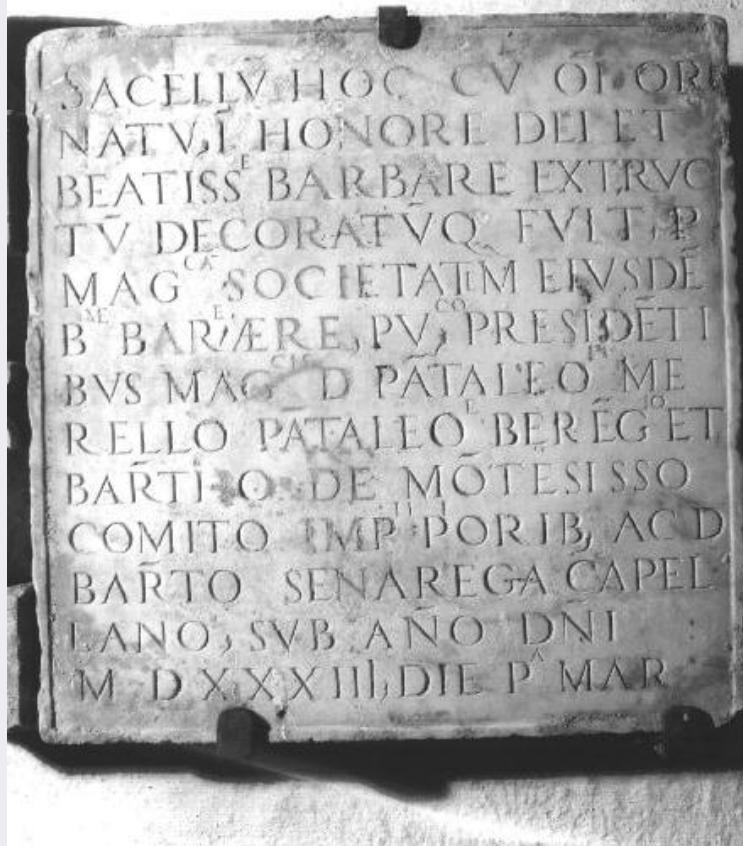 SACELLV̄ HOC CV̄ OĪ OR
NATV, Ī HONORE DEI ET
BEATISSᴱ BARBARE EXTRVC
TV̄ DECORATV̄Q FVIT, P
MAGᶜᴬ SOCIETATĒM EIVSDĒ
Bᴹᴱ BARBARE, PV, PRESIDĒTI
BVS MAGᶜᴵˢ D PĀTALEO ME
RELLO PĀTALEO BERĒGᴵᴼ ET
DE MŌTESISSO
COMITO IMP PORIB, AC D
BAR̄TO SENAREGA CAPEL
LANO, SVB AÑO DNI
M D XXXIIII, DIE Pᴬ MAR